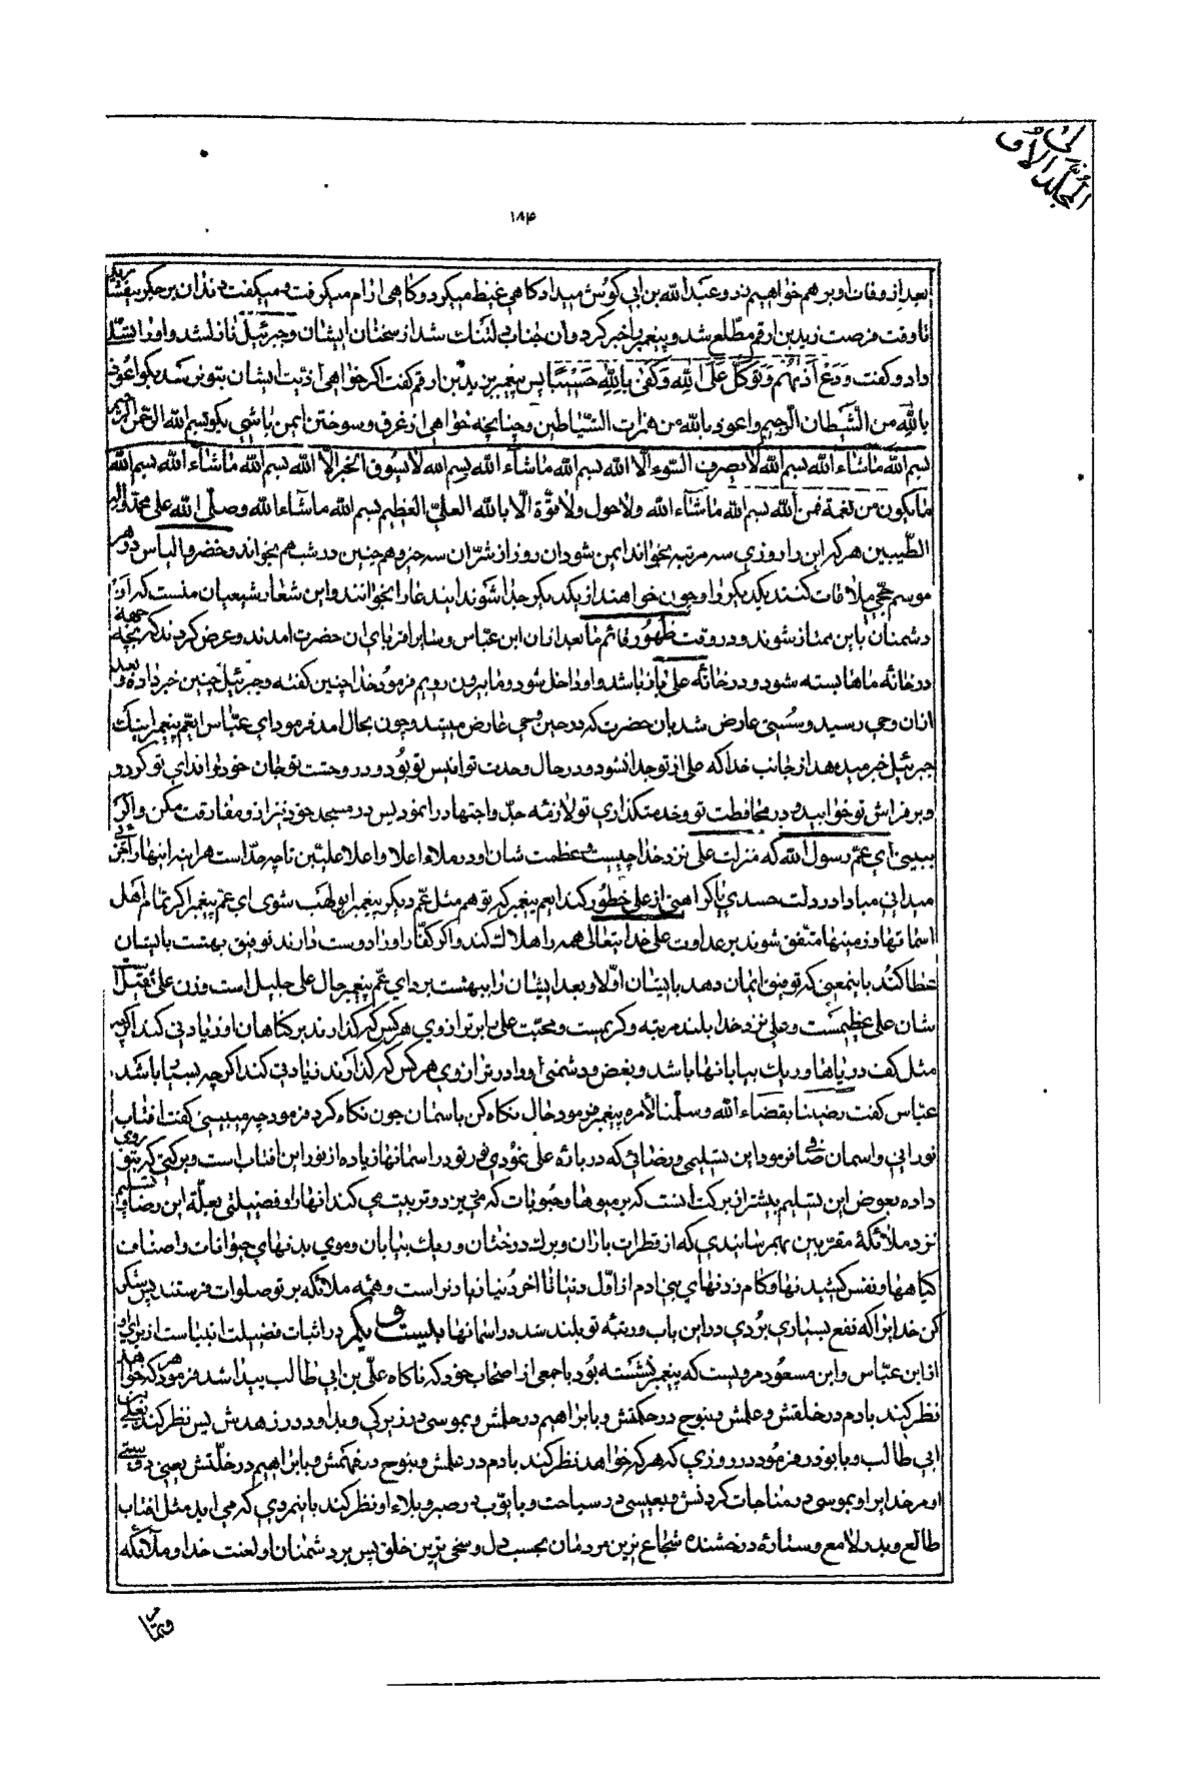 المجلد الاول
۱۸۴
بعد از وفات او بر هم خواهیم زد و عبد الله بن ابی گوش میداد گاهی غیظ میکرد و گاهی ارام میگرفت و میگفت دندان بر جگر بیفشارید
تا وقت فرصت زید بن ارقم مطّلع شد و پیغمبر را خبر کرد و ان جناب دلتنگ شد از سخنان ایشان و جبرئیل نازلشد و او را تسلّی
داد و گفت وَدَعْ اَذیهُم وَتَوَکَّلْ عَلَی اللهِ وَکَفی بِاللهِ حَسْیبًا پس پیغمبر بزید بن ارقم گفت اگر خواهی اذیّت ایشان بتو نرسد بگو اعوذ
باللهِ من الشَّیطان الرّجیم و اعوذ بالله من همزات الشّیاطین و چنانچه خواهی از غرق و سوختن ایمن باشی بگو بسم الله الرّحمن الرّحیم
بسم الله ماشاء الله بسم الله لا یصرف السّوء الّا الله بسم الله ماشاء الله بسم الله لا یسوق الخیر الّا الله بسم الله ماشاء الله بسم الله
ما یکون من نعمة فمن الله بسم الله ماشاء الله ولا حول ولا قوّة الّا بالله العلیّ العظیم بسم الله ماشاء الله وصلّی الله علی محمّد واله
الطّیبین هر که این را روزی سه مرتبه بخواند ایمن شود ان روز از شرّ ان سه چیز و همچنین در شب هم بخواند و خضر و الیاس در هر
موسم حجّی ملاقات کنند یکدیگر را و چون خواهند از یکدیگر جدا شوند ایندعا را بخوانند و این شعار شیعیان منست که از
دشمنان باین ممتاز شوند و در وقت ظهور قائم ما بعد ازان ابن عبّاس و سایر اقربای ان حضرت امدند و عرض کردند که بچه جهة
در خانهٔ ماها بسته شود و در خانهٔ علی باز باشد و او داخل شود و ما بیرون رویم فرمود خدا چنین گفته و جبرئیل چنین خبر داده و بعد
ازان وحی رسید و سُستی عارض شد بان حضرت که در حین وحی عارض میشد و چون بحال امد فرمود ای عبّاس ای عمّ پیغمبر اینک
جبرئیل خبر میدهد از جانب خدا که علی از تو جدا نشود و در حال وحدت تو انیس تو بُود و در وحشت تو جان خود را فدای تو کرد و
و بر فراش تو خوابید و در محافظت تو و خدمتگذاری تو لازمهٔ جدّ و اجتهاد را نمود پس در مسجد خود نیز ازو مفارقت مکن و اگر
ببینی ای عمّ رسول الله که منزلت علی نزد خدا چیست و عظمت شان او در ملاء اعلا و اعلا علیّین تا چه حدّ است هراینه اینها را
میدانی مبادا در دلت حسدی یا کراهتی از علی خطور کند ای عم پیغمبر که تو هم مثل عمّ دیگر پیغمبر ابو لهب شوی ای عمّ پیغمبر اگر تمام اهل
اسمانها و زمینها متّفق شوند بر عداوت علی خدایتعالی همه را هلاک کند و اگر کفّار او را دوست دارند توفیق بهشت بایشان
عطا کند باینمعنی که توفیق ایمان دهد بایشان اوّلا و بعد ایشان را ببهشت برد ای عمّ پیغمبر حال علی جلیل است و وزن علی ثقیل است
شان علی عظیمست و علی نزد خدا بلند مرتبه و کریمست و محبّت علی را بر ترازوی هر کس که گذارند بر گناهان او زیادتی کند اگر چه
مثل کف دریاها و ریک بیابانها باشد و بغض و دشمنی او را در ترازوی هر کس که گذارند زیادتی کند اگر چه باشد
عبّاس گفت رضینا بقضاء الله وسلّمنا لامره پیغمبر فرمود حال نگاه کن باسمان چون نگاه کرد فرمود چه میبینی گفت افتاب
نورانی و اسمان صافی فرمود این تسلیمی و رضائی که در بارهٔ علی نمودی نور تو در اسمانها زیاده از نور این افتاب است و برکتی که بتو روی
داده بعوض این تسلیم بیشتر از برکت است که بر میوها و حبوبات که می پزد و تربیت می کند انها را و فضیلتی بعلّة این رضا و تسلیم
نزد ملائکهٔ مقرّبین بهم رسانیدی که از قطرات باران و برک درختان و ریک بیابان و موی بدنهای حیوانات و اصناف
گیاهها و نفس کشیدنها و گام زدنهای بنی ادم از اوّل دنیا تا اخر دُنیا زیادتر است و همهٔ ملائکه بر تو صلوات فرستند پس شکر
کن خدایرا که نفع بسیاری بُردی در این باب و رتبهٔ تو بلند شد در اسمانها بیست و یکم در اثبات فضیلت انبیاست از برای او
از ابن عبّاس و ابن مسعود مرویست که پیغمبر نشسته بُود با جمعی از اصحاب خود که ناگاه علیّ بن ابی طالب پیدا شد فرمود که هر که خواهد
نظر کند بادم در خلقش و علمش و بنوح در حکمتش و بابراهیم در حلمش و بموسی در زیرکی و بداود در زهدش پس نظر کند بعلیّ بن
ابی طالب و بابوذر فرمود در روزی که هر که خواهد نظر کند بادم در علمش و بنوح در فهمش و بابراهیم در خلّتش یعنی دوستی
او مر خدایرا و بموسی در مناجات کردنش و بعیسی در سیاحت و بایّوب در صبر و بلاء او نظر کند باینمردی که می اید مثل افتاب
طالع و بدر لامع و ستارهٔ درخشنده شجاع ترین مردمان بحسب دل و سخی ترین خلق پس بر دشمنان او لعنت خدا و ملائکه